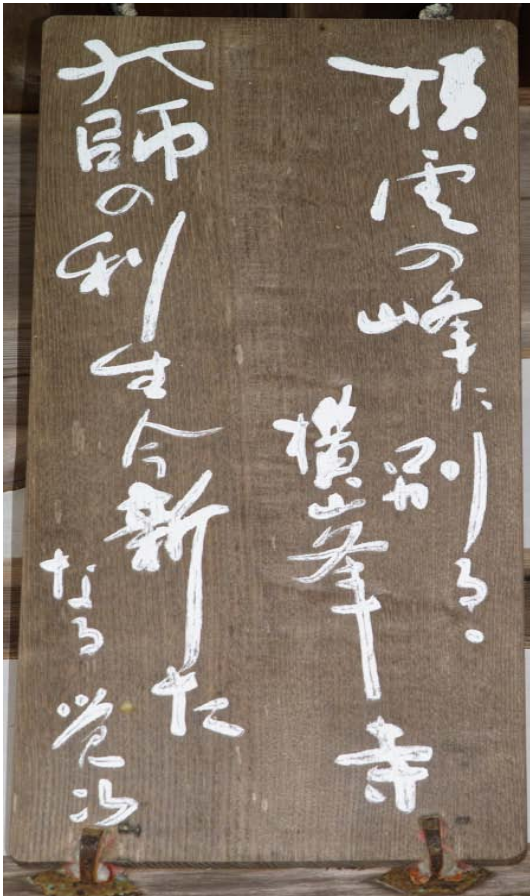 横雲の峰に別る
横峯寺
大師の利生今新た
なる